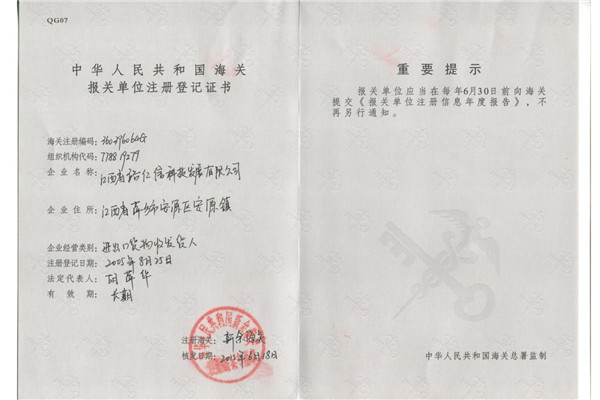 QG07
中华人民共和国海关
报关单位注册登记证书
海关注册编码:
组织机构代码:
企业名称:
企业住所: 江西省萍乡市安源区安源镇
企业经营类别: 进出口货物收发货人
注册登记日期: 2005年8月25日
法定代表人: 胡萍华
有效期: 长期
注册海关: 新余海关
核发日期: 2015年6月18日
重要提示
报关单位应当在每年6月30日前向海关
提交《报关单位注册信息年度报告》,不
再另行通知。
中华人民共和国海关总署监制